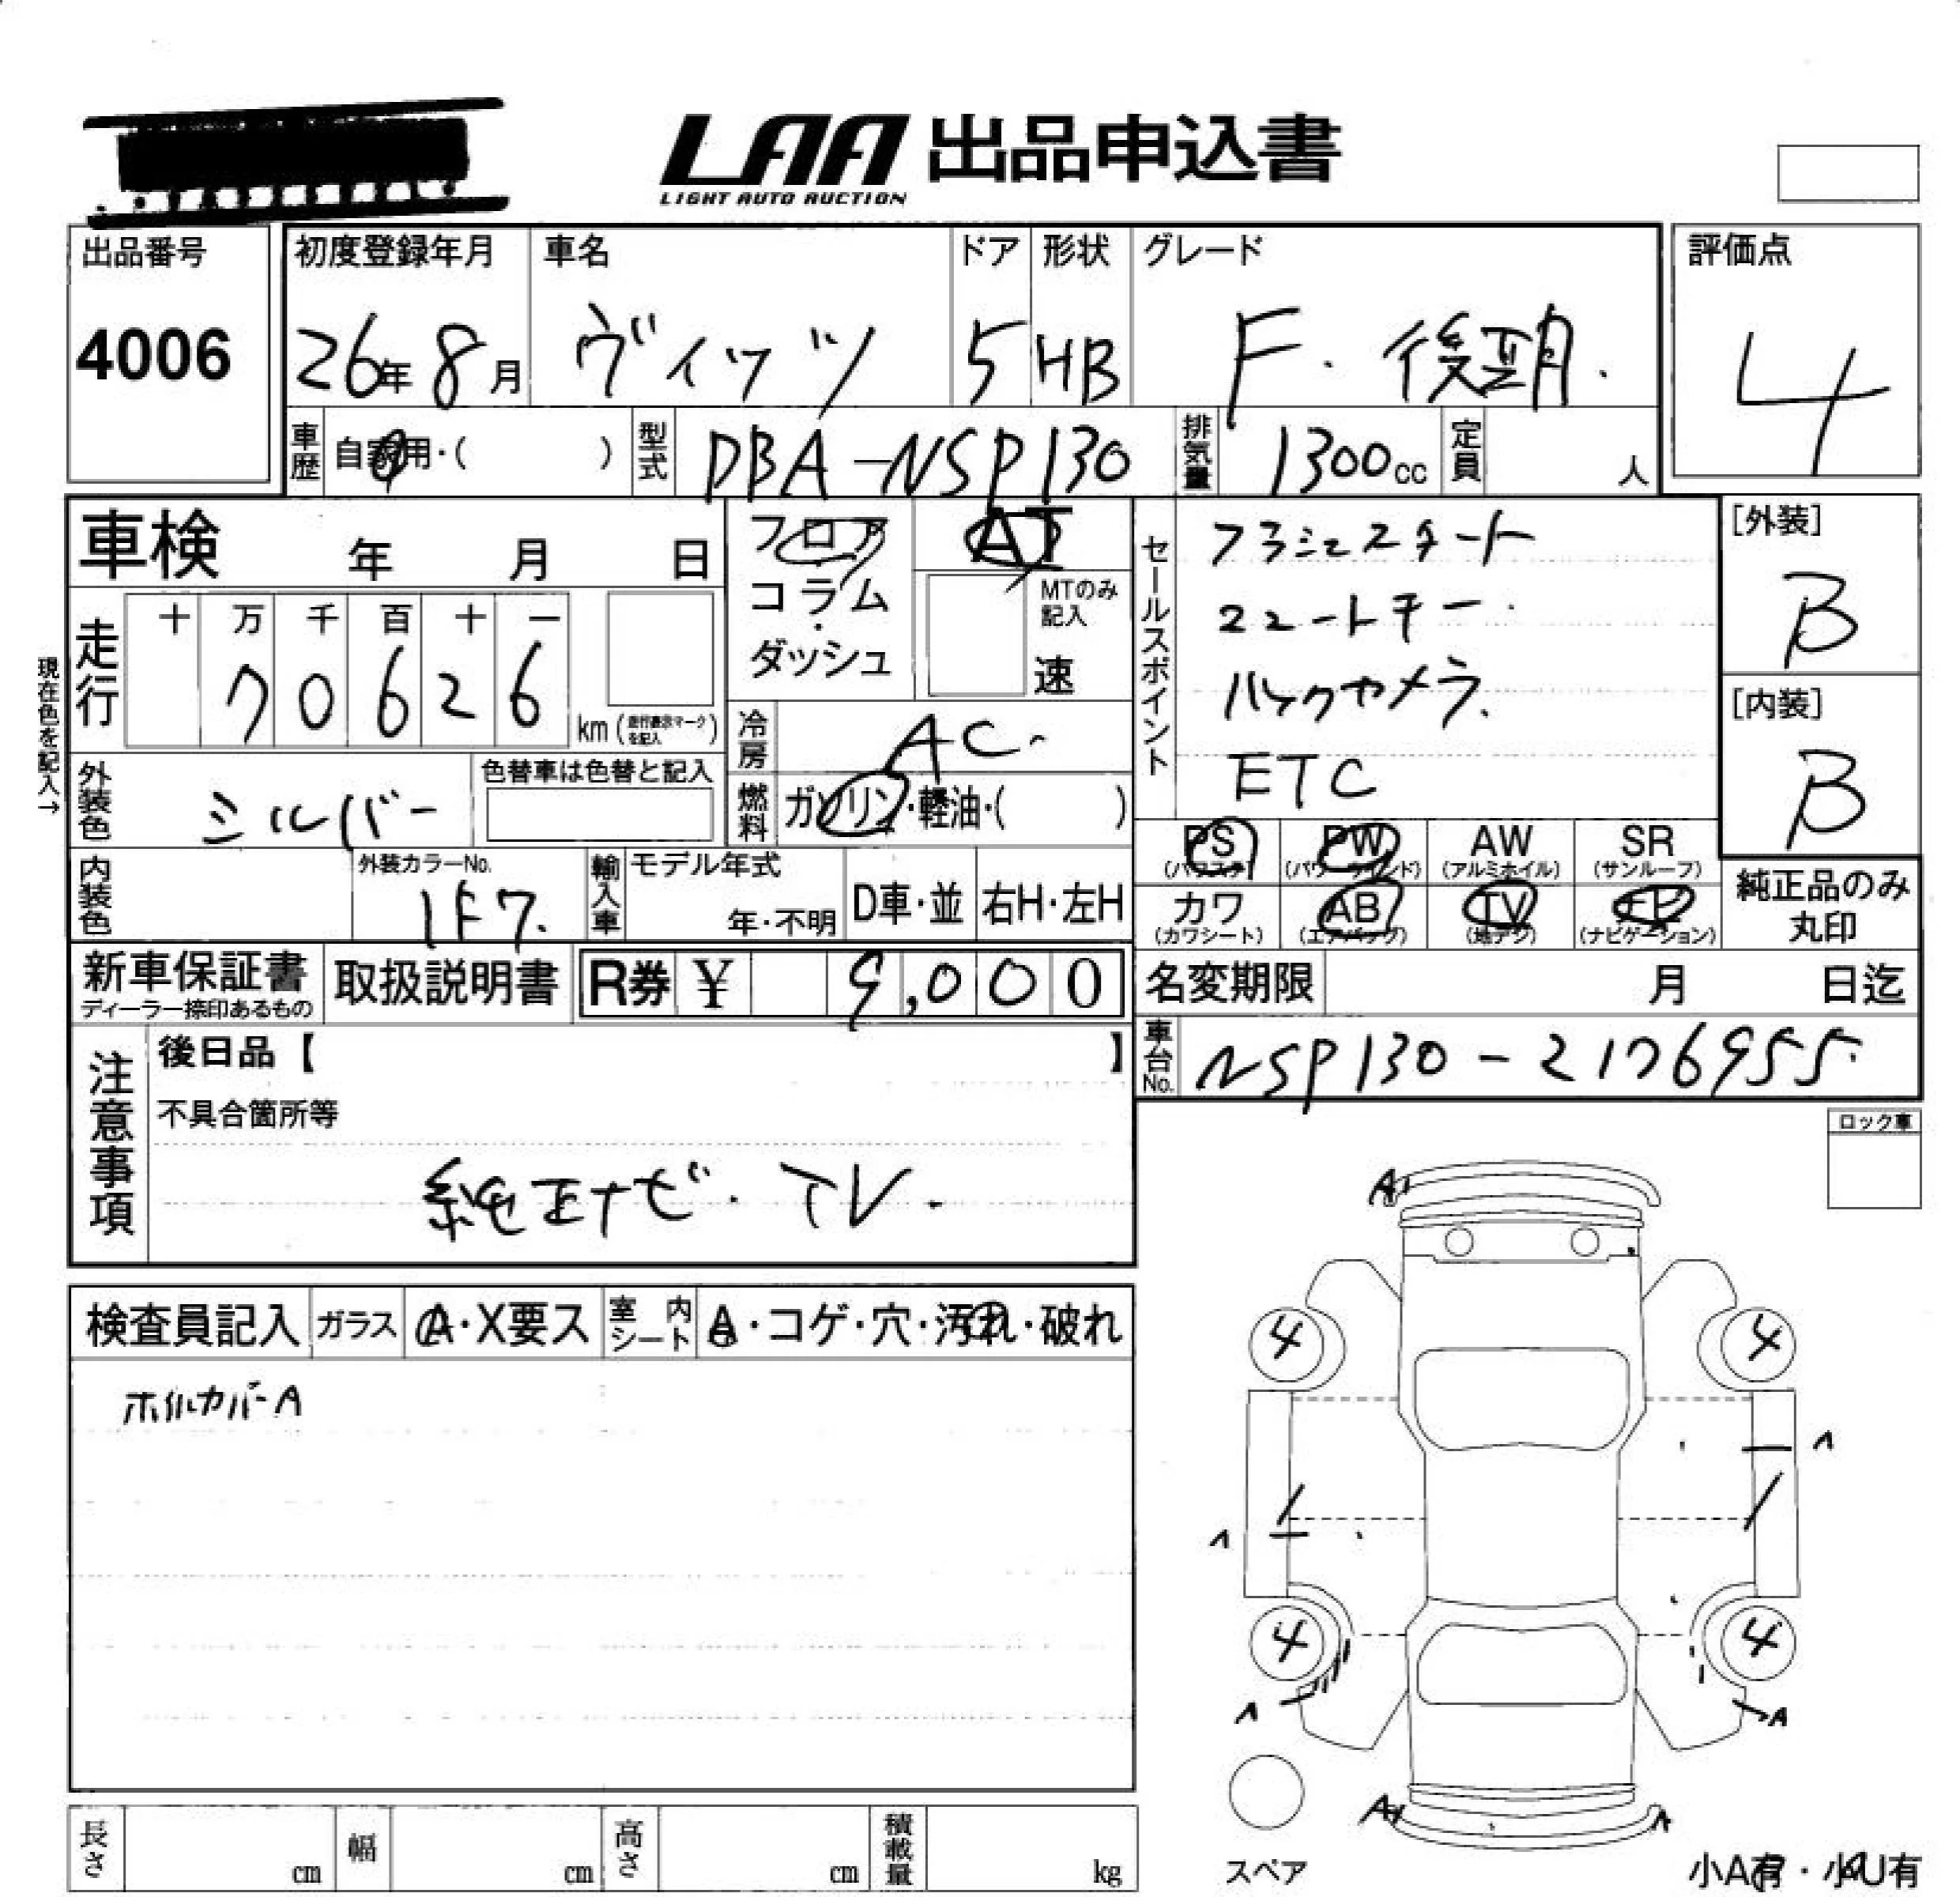 LAA 出品申込書
LIGHT AUTO AUCTION
出品番号
4006
初度登録年月
26年8月
車名
ヴィッツ
ドア
5
形状
HB
グレード
F. 後期.
評価点
4
車歴 自家用・( )
型式 DBA-NSP130
排気量 1300cc
定員 人
車検 年 月 日
フロア
コラム
・
ダッシュ
AT
MTのみ記入
速
セールスポイント
プッシュスタート
スマートキー.
バックカメラ.
ETC
[外装]
B
[内装]
B
現在色を記入→
走行
十 万 千 百 十 一
7 0 6 2 6
km (走行表示マークを記入)
冷房 AC.
燃料 ガソリン・軽油・( )
外装色 シルバー
色替車は色替と記入
内装色
外装カラーNo.
1F7.
輸入車
モデル年式
年・不明
D車・並
右H・左H
PS (パワステ)
PW (パワーウインド)
AW (アルミホイル)
SR (サンルーフ)
カワ (カワシート)
AB (エアバック)
TV (地デジ)
(ナビゲーション)
純正品のみ
丸印
新車保証書
ディーラー捺印あるもの
取扱説明書
R券 ¥ 9,000
名変期限 月 日迄
車台No. NSP130-2176955.
注意事項
後日品【 】
不具合箇所等
純正ナビ. TV.
ロック車
検査員記入
ガラス A・X要ス
室内シート A・コゲ・穴・汚れ・破れ
ホイルカバーA
A
4 4
A
A
4 4
A A
A A
スペア
小A有・小U有
長さ cm
幅 cm
高さ cm
積載量 kg